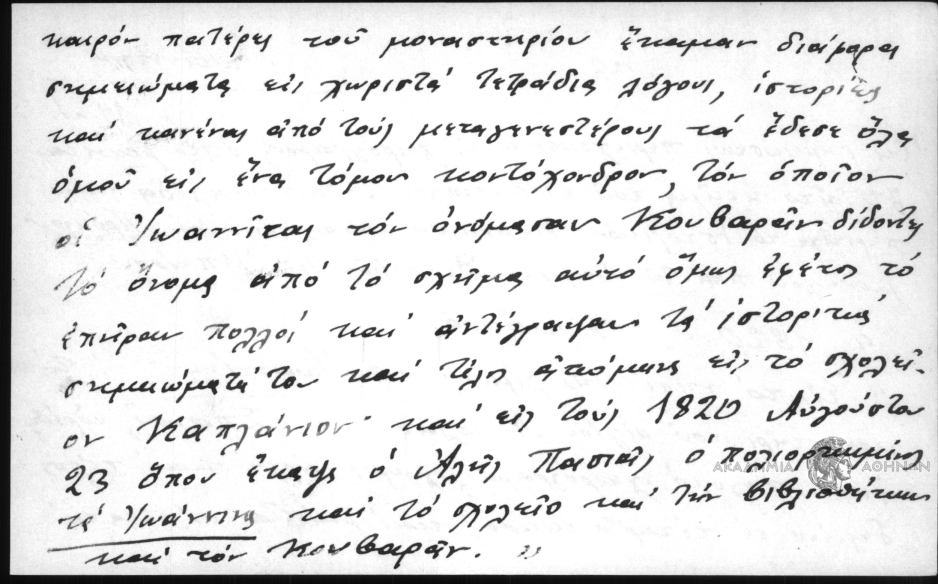 καιρόν πατέρες τοῦ μοναστηρίου ἔκαμαν διάφορα
σημειώματα εἰς χωριστά τετράδια λόγους, ἱστορίες
καί κανένας ἀπό τούς μεταγενεστέρους τά ἔδεσε ὅλα
ὁμοῦ εἰς ἕνα τόμον κοντόχονδρον, τόν ὁποῖον
οἱ Ἰωαννῖται τόν ὀνόμασαν Κουβαρᾶν δίδοντες
τό ὄνομα ἀπό τό σχῆμα αὐτό ὅμως ἐφέτος τό
ἐπῆραν πολλοί καί ἀντέγραψαν τά ἱστορικά
σημειώματά του καί τέλος εἰς τό σχολεῖ-
ον Καπλάνιον καί εἰς τούς 1820 Αὐγούστου
23 ὅπου ἔκαψε ὁ Ἀλῆς Πασιᾶς ὁ πολιορκημένος
τά Ἰωάννινα καί τό σχολεῖο καί τήν βιβλιοθήκην
καί τόν Κουβαρᾶν. »
ΑΚΑΔΗΜΙΑ ΑΘΗΝΩΝ